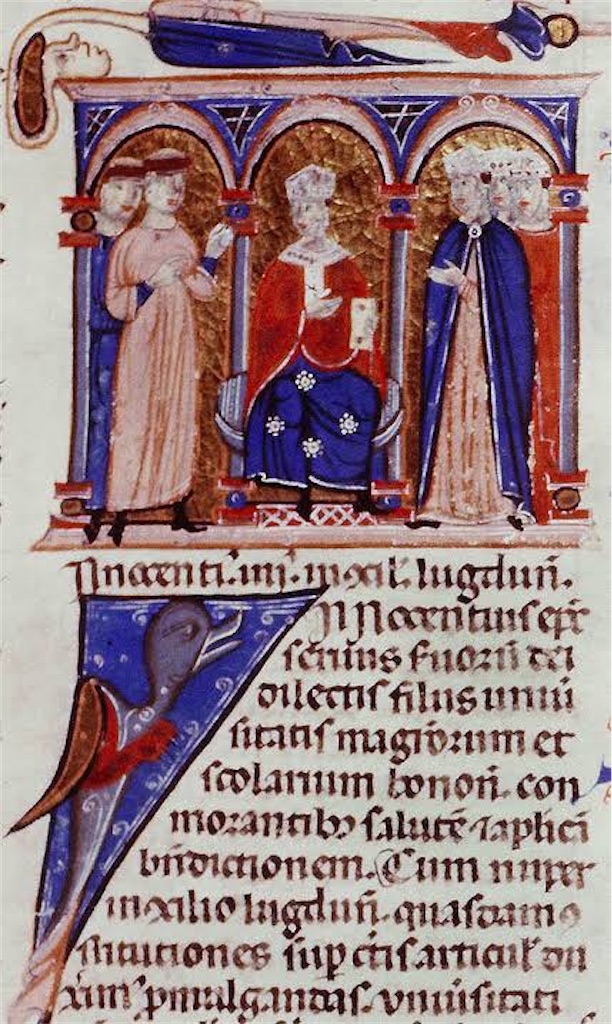 Innocenti. iiii. in ɔcil. lugdun̄.
INNocentius ep̄c
seruus seruoru dei
dilectis filiis uniu
sitatis magr̄orum et
scolarium bonon̄. con
morantib; salutē ⁊ aplicā
bn̄dictionem. Cum nuper
in ɔcilio lugdun̄. quasdam ɔ
stitutiones sup c̄tis articul̄ du
xim᾽ pmulgandas. uniu̅sitati